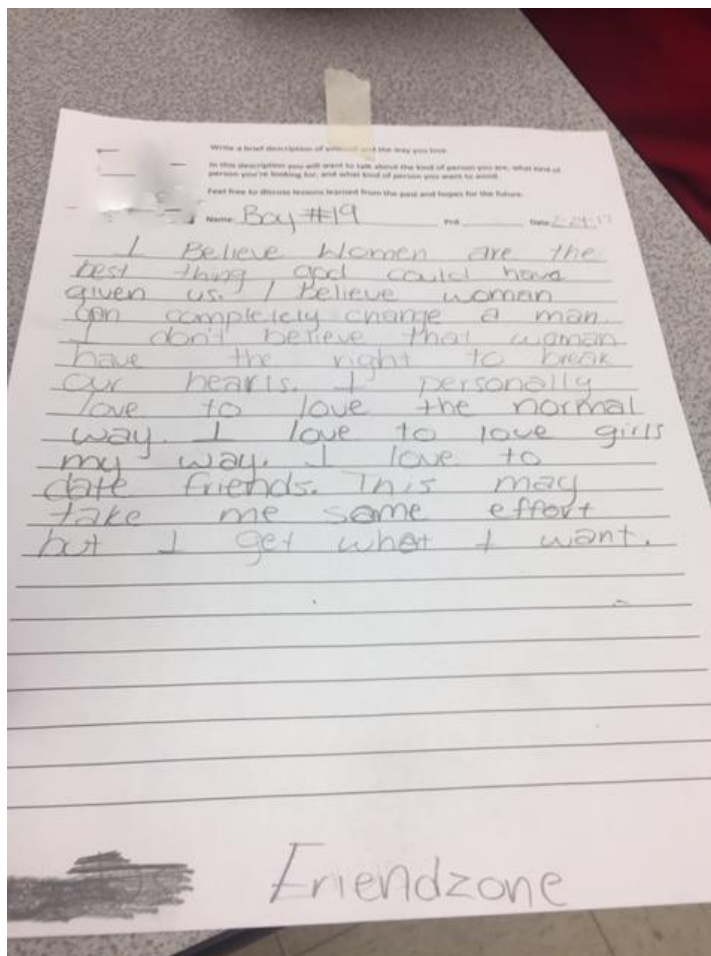 Write a brief description of yourself and the way you love.
In this description you will want to talk about the kind of person you are, what kind of
person you're looking for, and what kind of person you want to avoid.
Feel free to discuss lessons learned from the past and hopes for the future.
Name: Boy #19 Prd Date 2-24-17
I Believe Women are the
best thing god could have
given us. I Believe woman
can completely change a man.
I don't believe that woman
have the right to break
our hearts. I personally
love to love the normal
way. I love to love girls
my way. I love to
date friends. This may
take me some effort
but I get what I want.
Friendzone